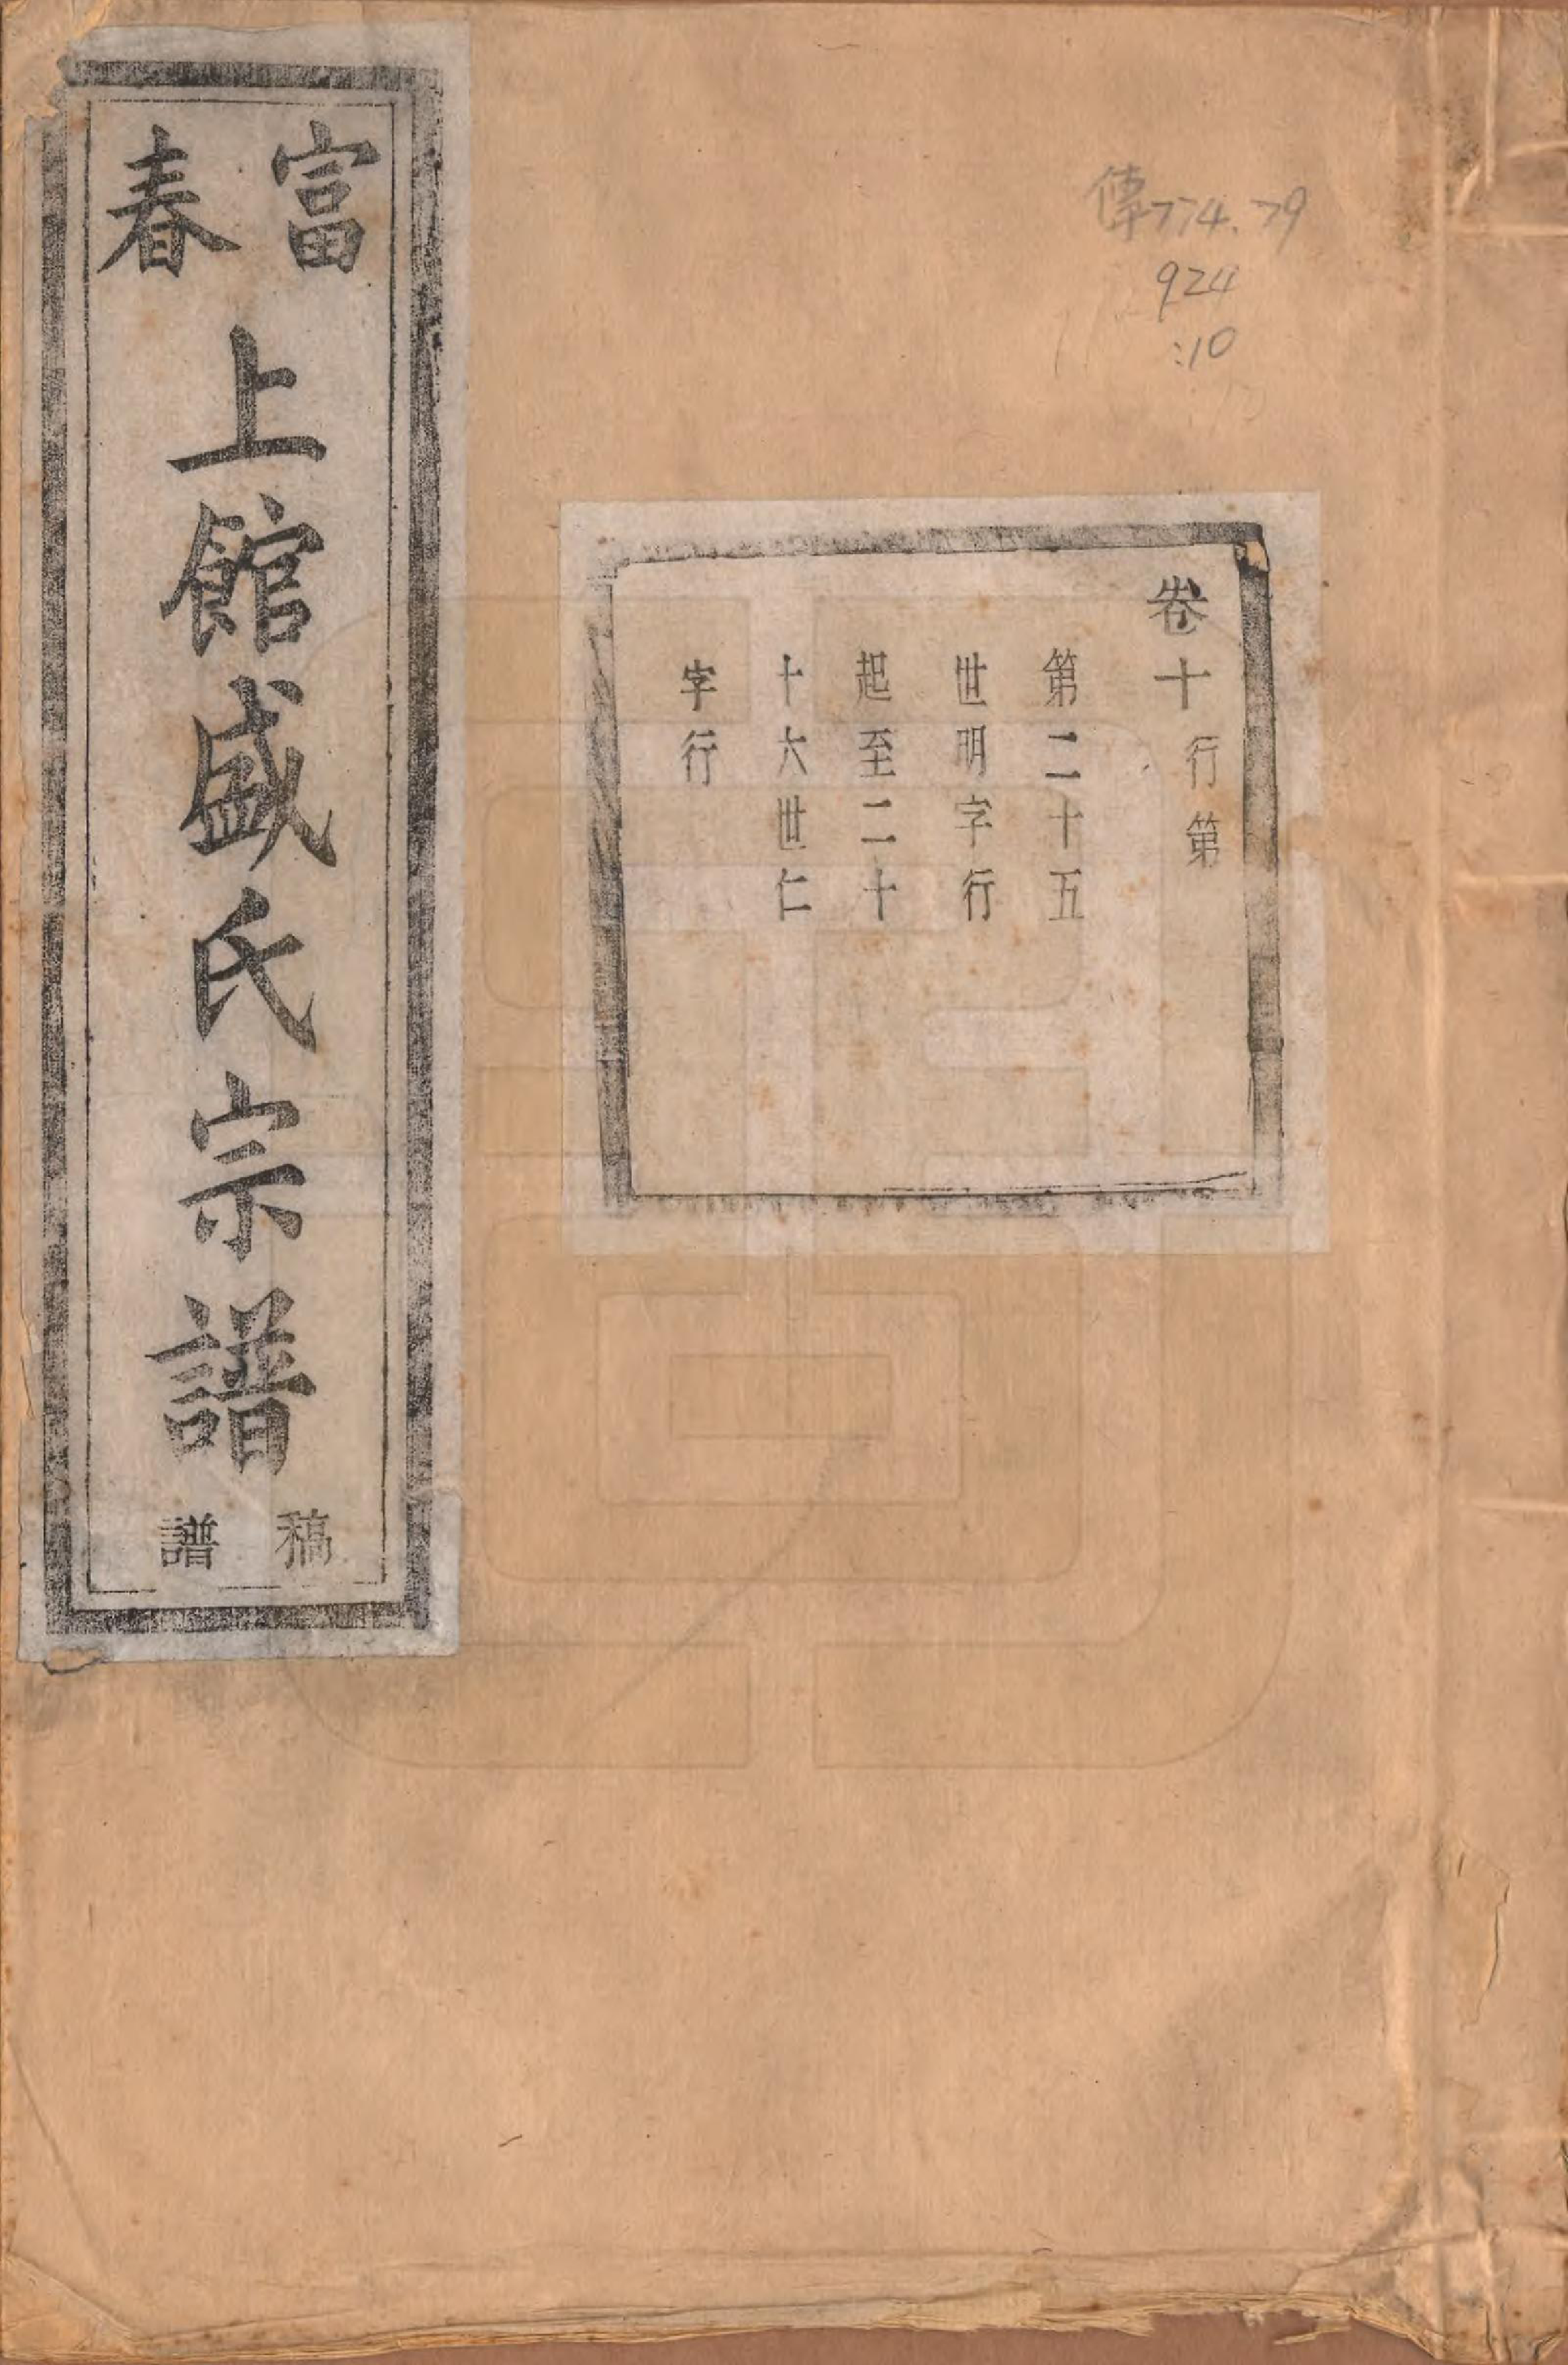 富春
上館盛氏宗譜
稿譜
傳774.79
924
:10
卷十
行第
第二十五
世明字行
起至二十
十六世仁
字行